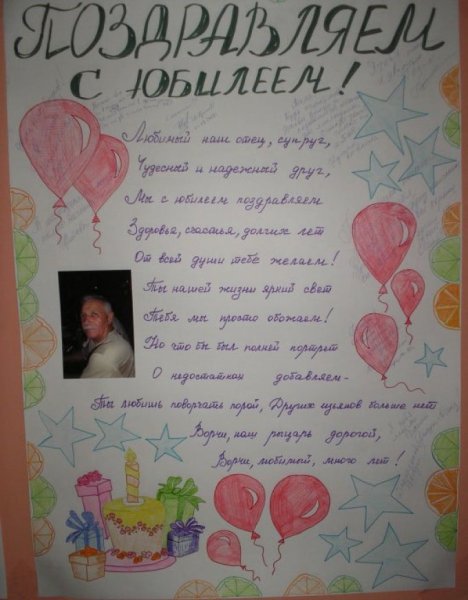 ПОЗДРАВЛЯЕМ
С ЮБИЛЕЕМ!
Любимый наш отец, супруг,
Чудесный и надежный друг,
Мы с юбилеем поздравляем
Здоровья, счастья, долгих лет
От всей души тебе желаем!
Ты нашей жизни яркий свет
Тебя мы просто обожаем!
Но что бы был полней портрет
О недостатках добавляем-
Ты любишь поворчать порой, Других изъянов больше нет
Ворчи, наш рыцарь дорогой,
Ворчи, любимый, много лет!